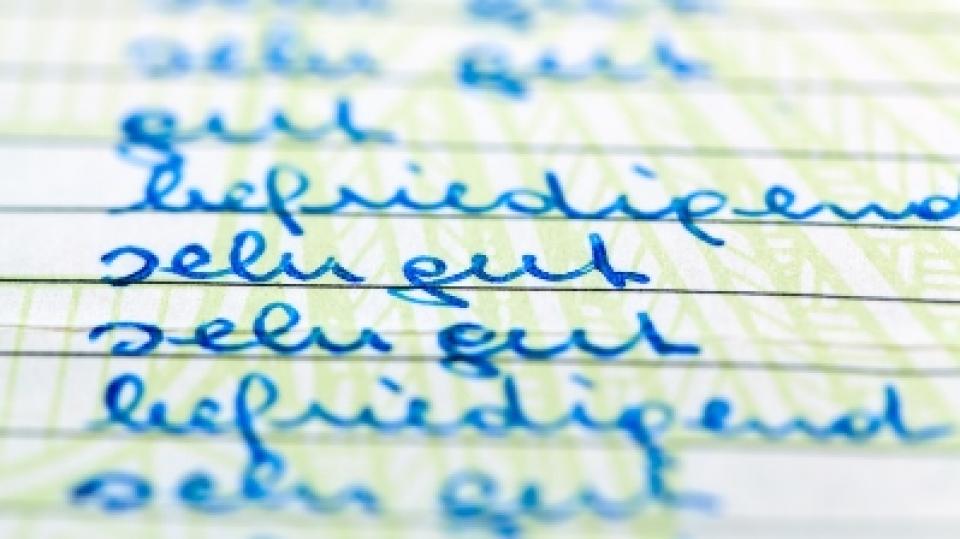 sehr gut
gut
befriedigend
sehr gut
sehr gut
befriedigend
sehr gut